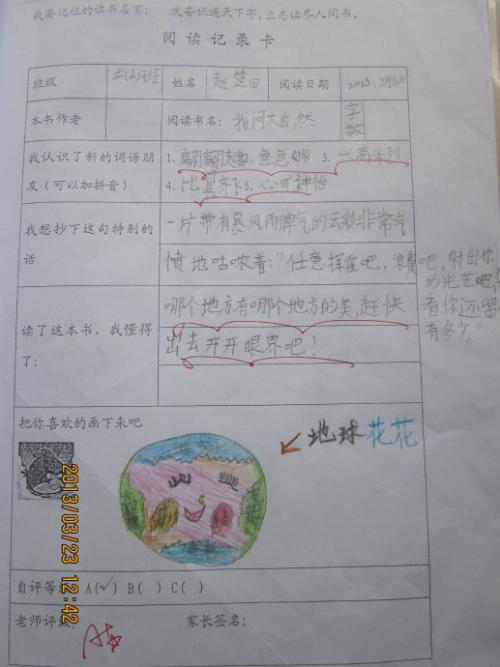 我要记住的读书名言： 发奋识遍天下字,立志读尽人间书。
阅读记录卡
班级 姓名 赵楚田 阅读日期 2013.3月
本书作者 阅读书名： 我问大自然 字数
我认识了新的词语朋友（可以加拼音） 1. 翩翩 2. 急急如 3. 兴高采列
4. 比翼齐飞 5. 心旷神怡
我想抄下这句特别的话 一片带有暴风雨脾气的云彩非常气
愤地咕哝着："任意挥霍吧，浪费吧，射出你的光芒吧，看你还留有多少。"
读了这本书，我懂得了： 哪个地方有哪个地方的美,赶快
出去开开眼界吧！
把你喜欢的画下来吧
地球花花
自评等级 A(✓) B( ) C( )
老师评级： A 家长签名：
2013/03/23 12:42